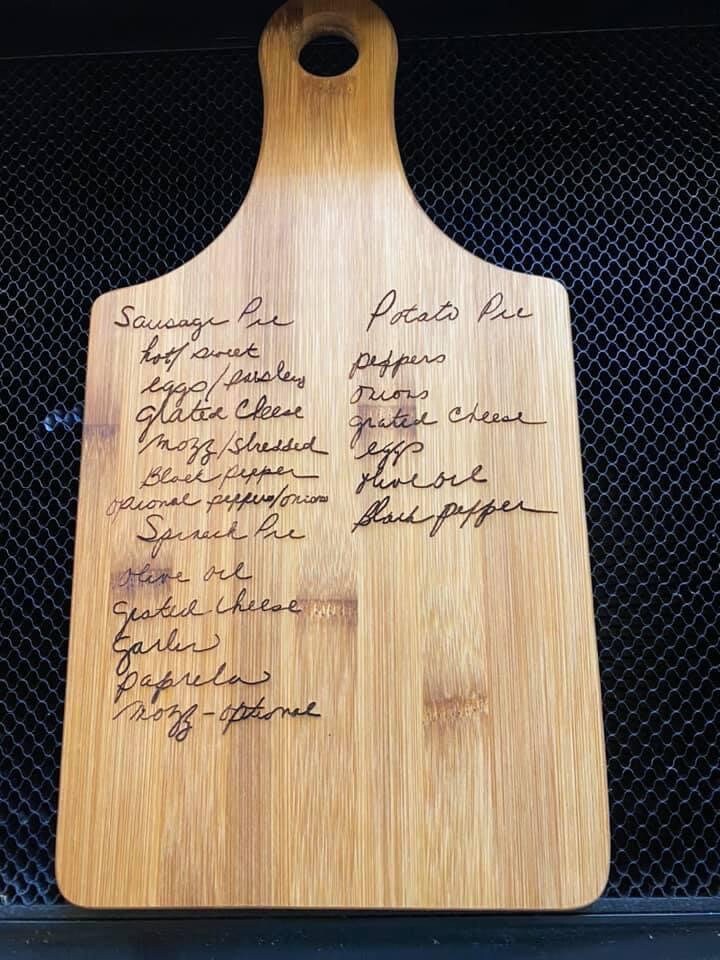 Sausage Pie
hot/sweet
eggs/parsley
grated Cheese
mozz/shredded
Black pepper
opional peppers/onions
Spinach Pie
olive oil
grated Cheese
Garlic
paprika
mozz-optional
Potato Pie
peppers
onions
grated Cheese
eggs
olive oil
Black pepper